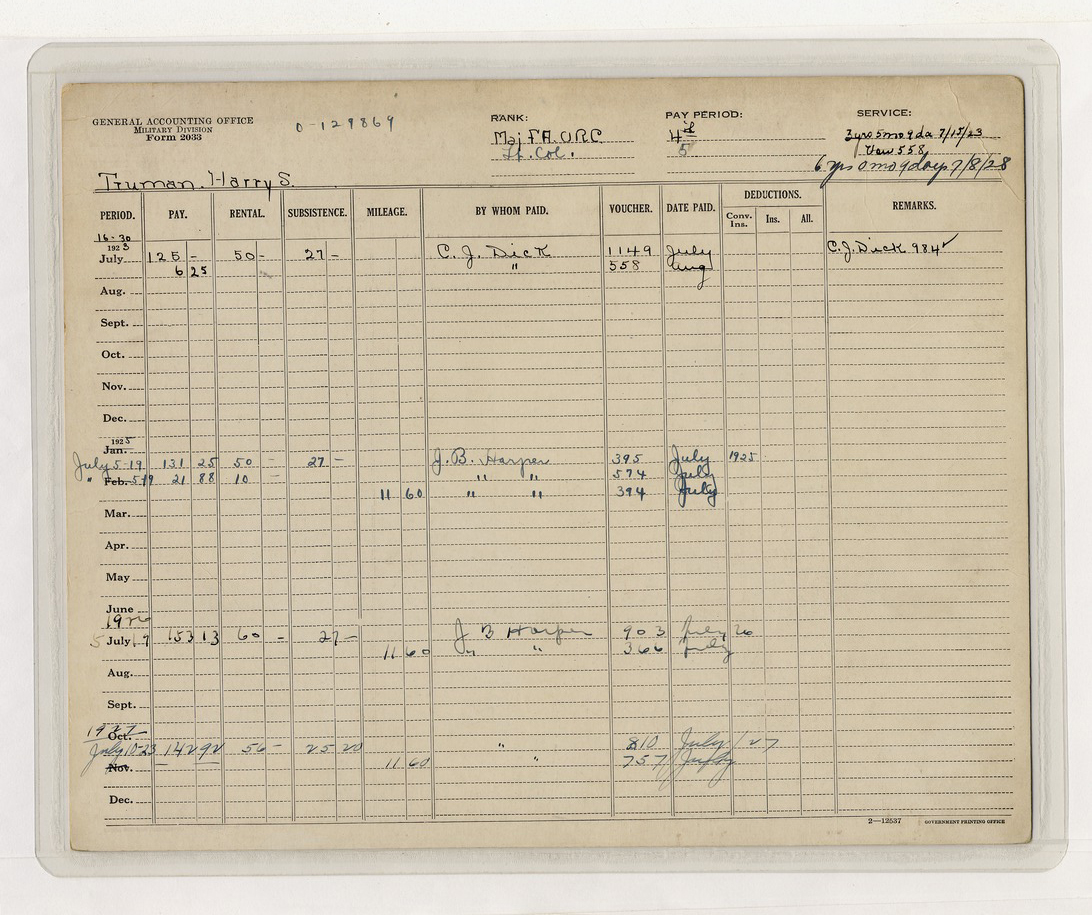 GENERAL ACCOUNTING OFFICE
MILITARY DIVISION
Form 2033
0-129869
RANK:
Maj FA. ORC
Lt. Col.
PAY PERIOD:
4
5
SERVICE:
3 yrs 5 mo 9 da 7/15/23
Vou 558
6 yrs 0 mo 9 days 7/8/28
Truman, Harry S.
PERIOD. PAY. RENTAL. SUBSISTENCE. MILEAGE. BY WHOM PAID. VOUCHER. DATE PAID. DEDUCTIONS. REMARKS.
Conv. Ins. Ins. All.
16-30
1923
July 125 - 50 - 27 - C. J. Dick 1149 July C.J. Dick 984 ✓
6 25 " 558 Aug
Aug.
Sept.
Oct.
Nov.
Dec.
1925
Jan.
July 5-19 131 25 50 - 27 - J. B. Harper 395 July 1925
" Feb. 5-19 21 88 10 " " 574 July
11 60 " " 394 July
Mar.
Apr.
May
June
1926
July 153 13 60 - 27 - J B Harper 903 July 26
11 60 " " 366 July
Aug.
Sept.
1927
Oct.
July 10-23 142 92 56 - 25 20 " 810 July / 27
Nov. 11 60 " 757 July
Dec.
2—12537 GOVERNMENT PRINTING OFFICE